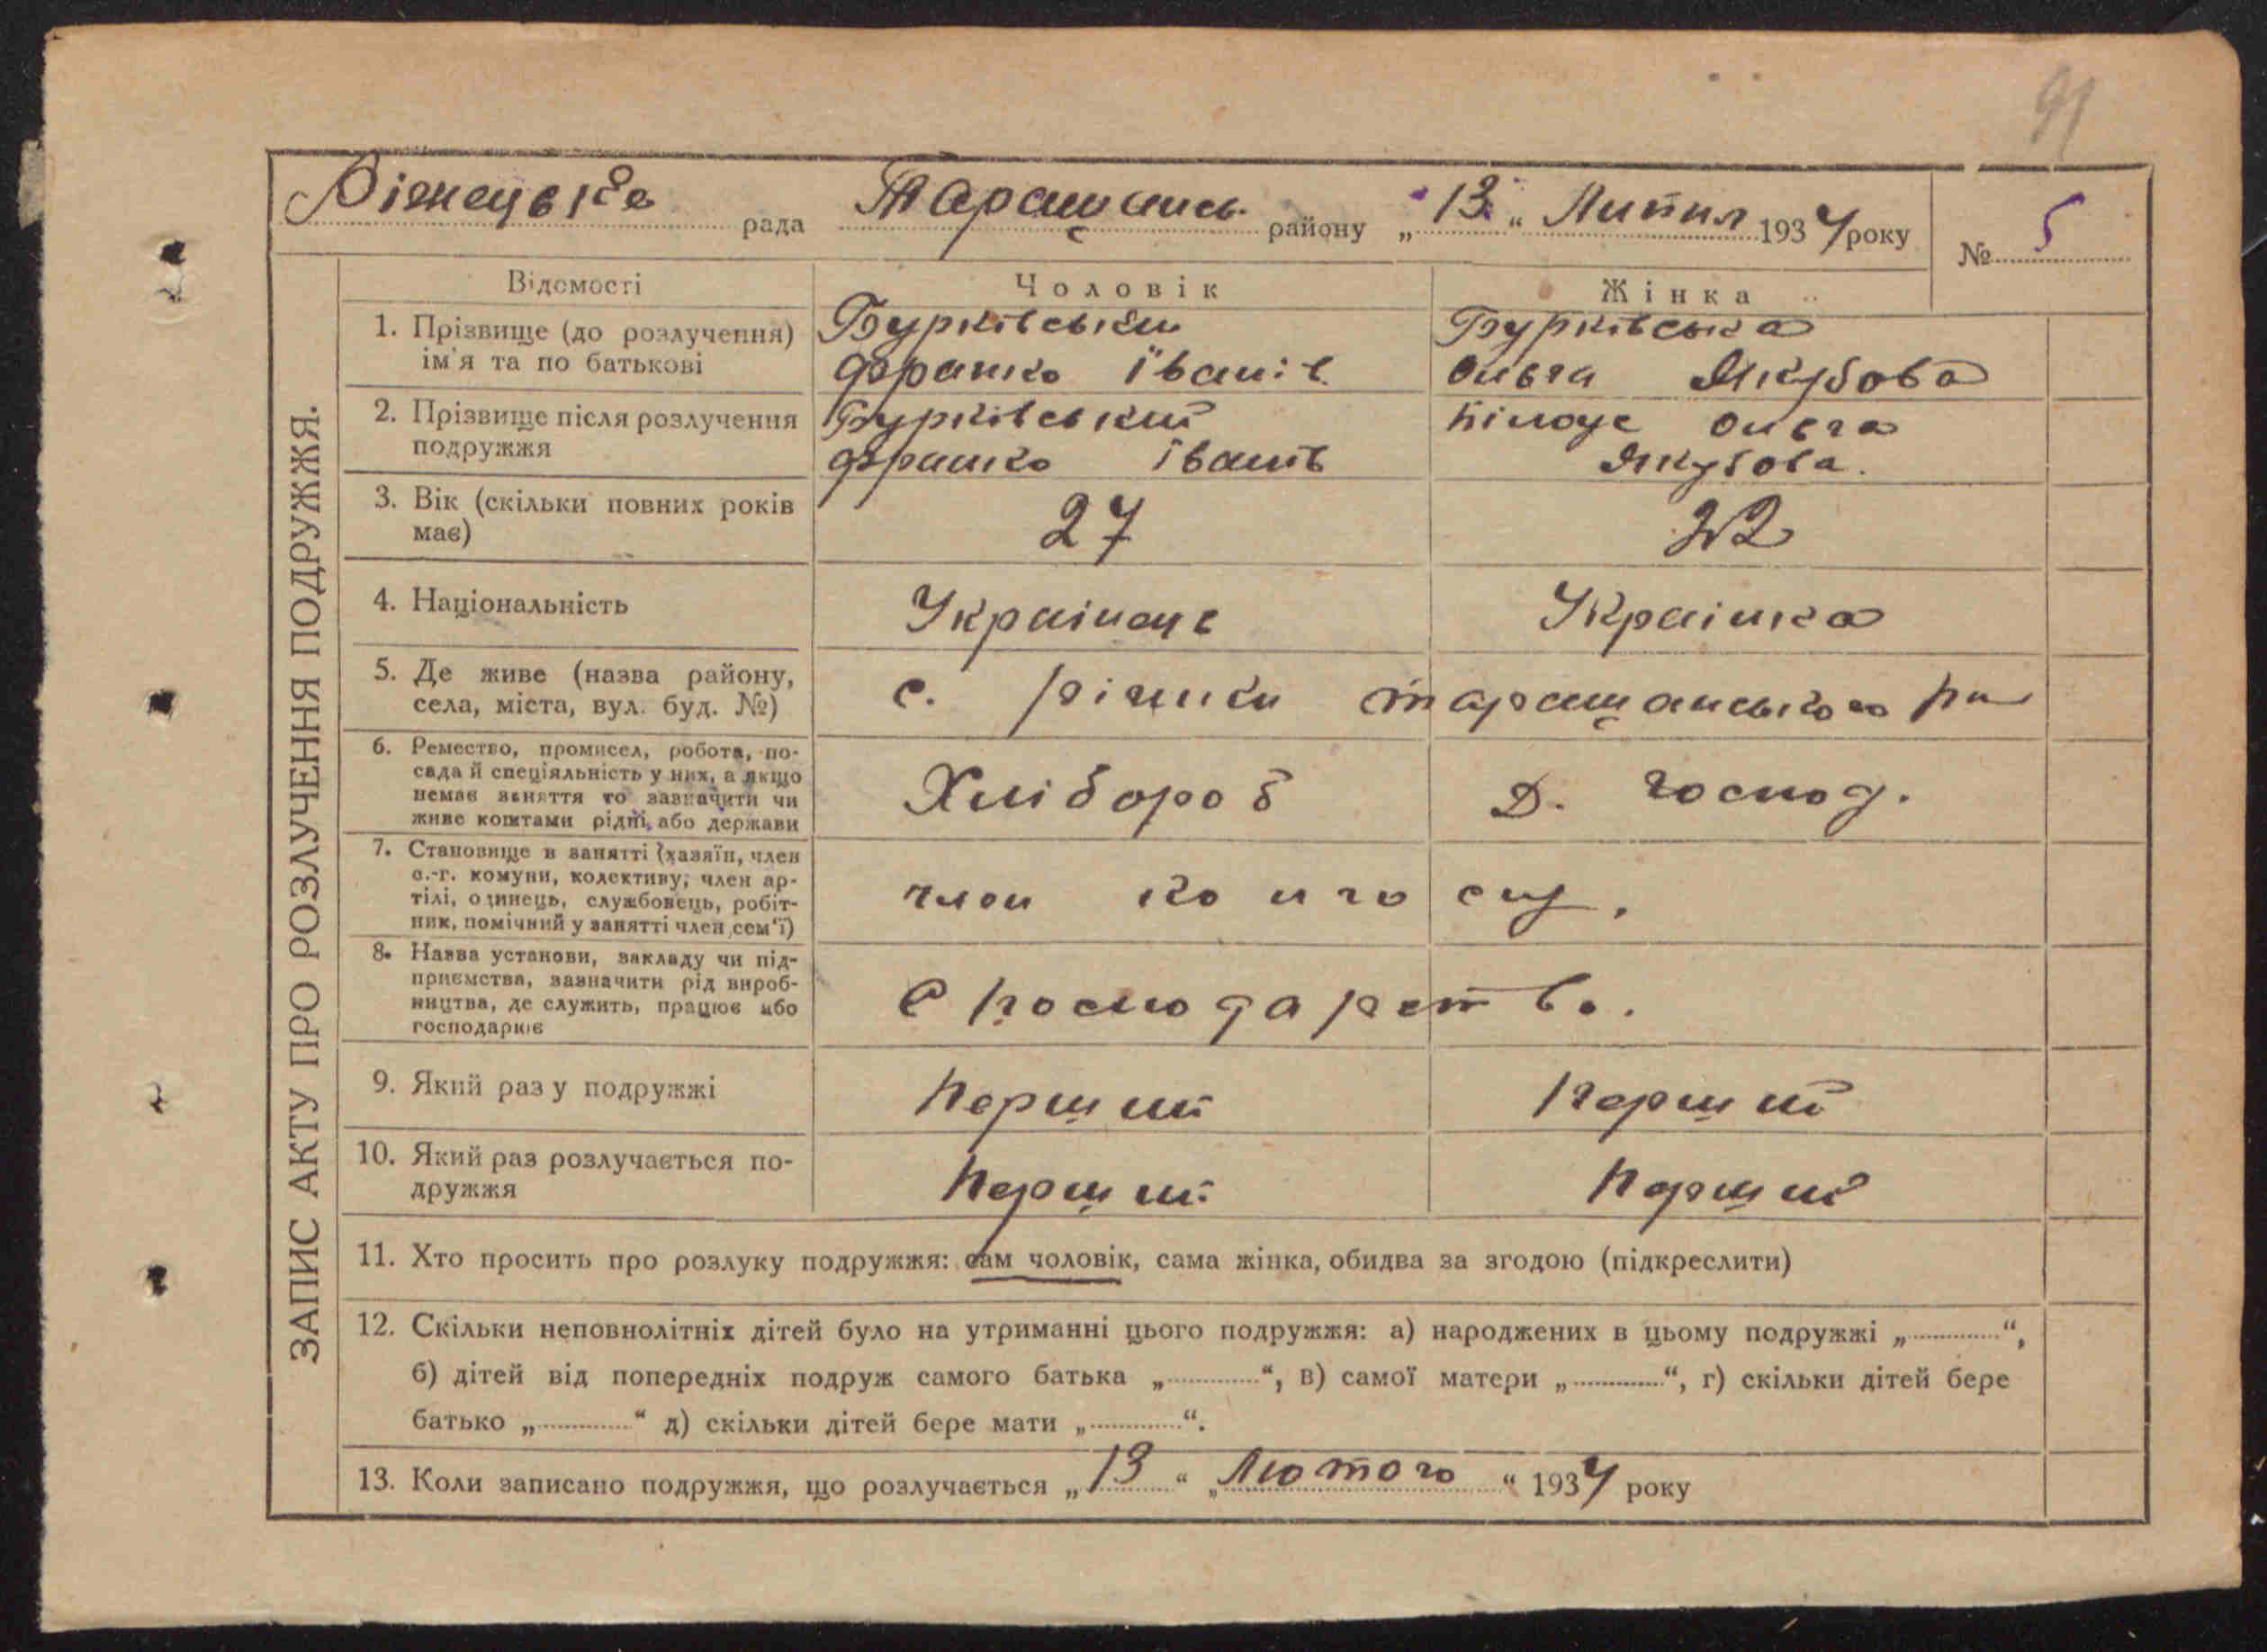 91
рада Таращанськ. району „13“ Липня 1934 року № 5
Відомості Чоловік Жінка
1. Прізвище (до розлучення) ім'я та по батькові
Бурківський Бурківська
Франко Іванів Ольга Якубова
2. Прізвище після розлучення подружжя
Бурківський Білоус Ольга
Франко Іванів Якубова.
3. Вік (скільки повних років має)
27 22
4. Національність
Українець Українка
5. Де живе (назва району, села, міста, вул. буд. №)
с. Річки Таращанського р-н
6. Ремество, промисел, робота, по-
сада й спеціяльність у них, а якщо
немає заняття то зазначити чи
живе коштами рідні, або держави
Хлібороб Д. господ.
7. Становище в занятті (хазяїн, член
с.-г. комуни, колективу, член ар-
тілі, одинець, службовець, робіт-
ник, помічний у занятті член сем'ї)
член колгоспу.
8. Назва установи, закладу чи під-
приємства, зазначити рід вироб-
ництва, де служить, працює або
господарює
С господарство.
9. Який раз у подружжі
Перший Перший
10. Який раз розлучається по-
дружжя
Перший Перший
11. Хто просить про розлуку подружжя: сам чоловік, сама жінка, обидва за згодою (підкреслити)
12. Скільки неповнолітніх дітей було на утриманні цього подружжя: а) народжених в цьому подружжі „..........“,
б) дітей від попередніх подруж самого батька „..........“, в) самої матери „..........“, г) скільки дітей бере
батько „..........“ д) скільки дітей бере мати „..........“.
13. Коли записано подружжя, що розлучається „13“ „Лютого“ 1934 року
ЗАПИС АКТУ ПРО РОЗЛУЧЕННЯ ПОДРУЖЖЯ.